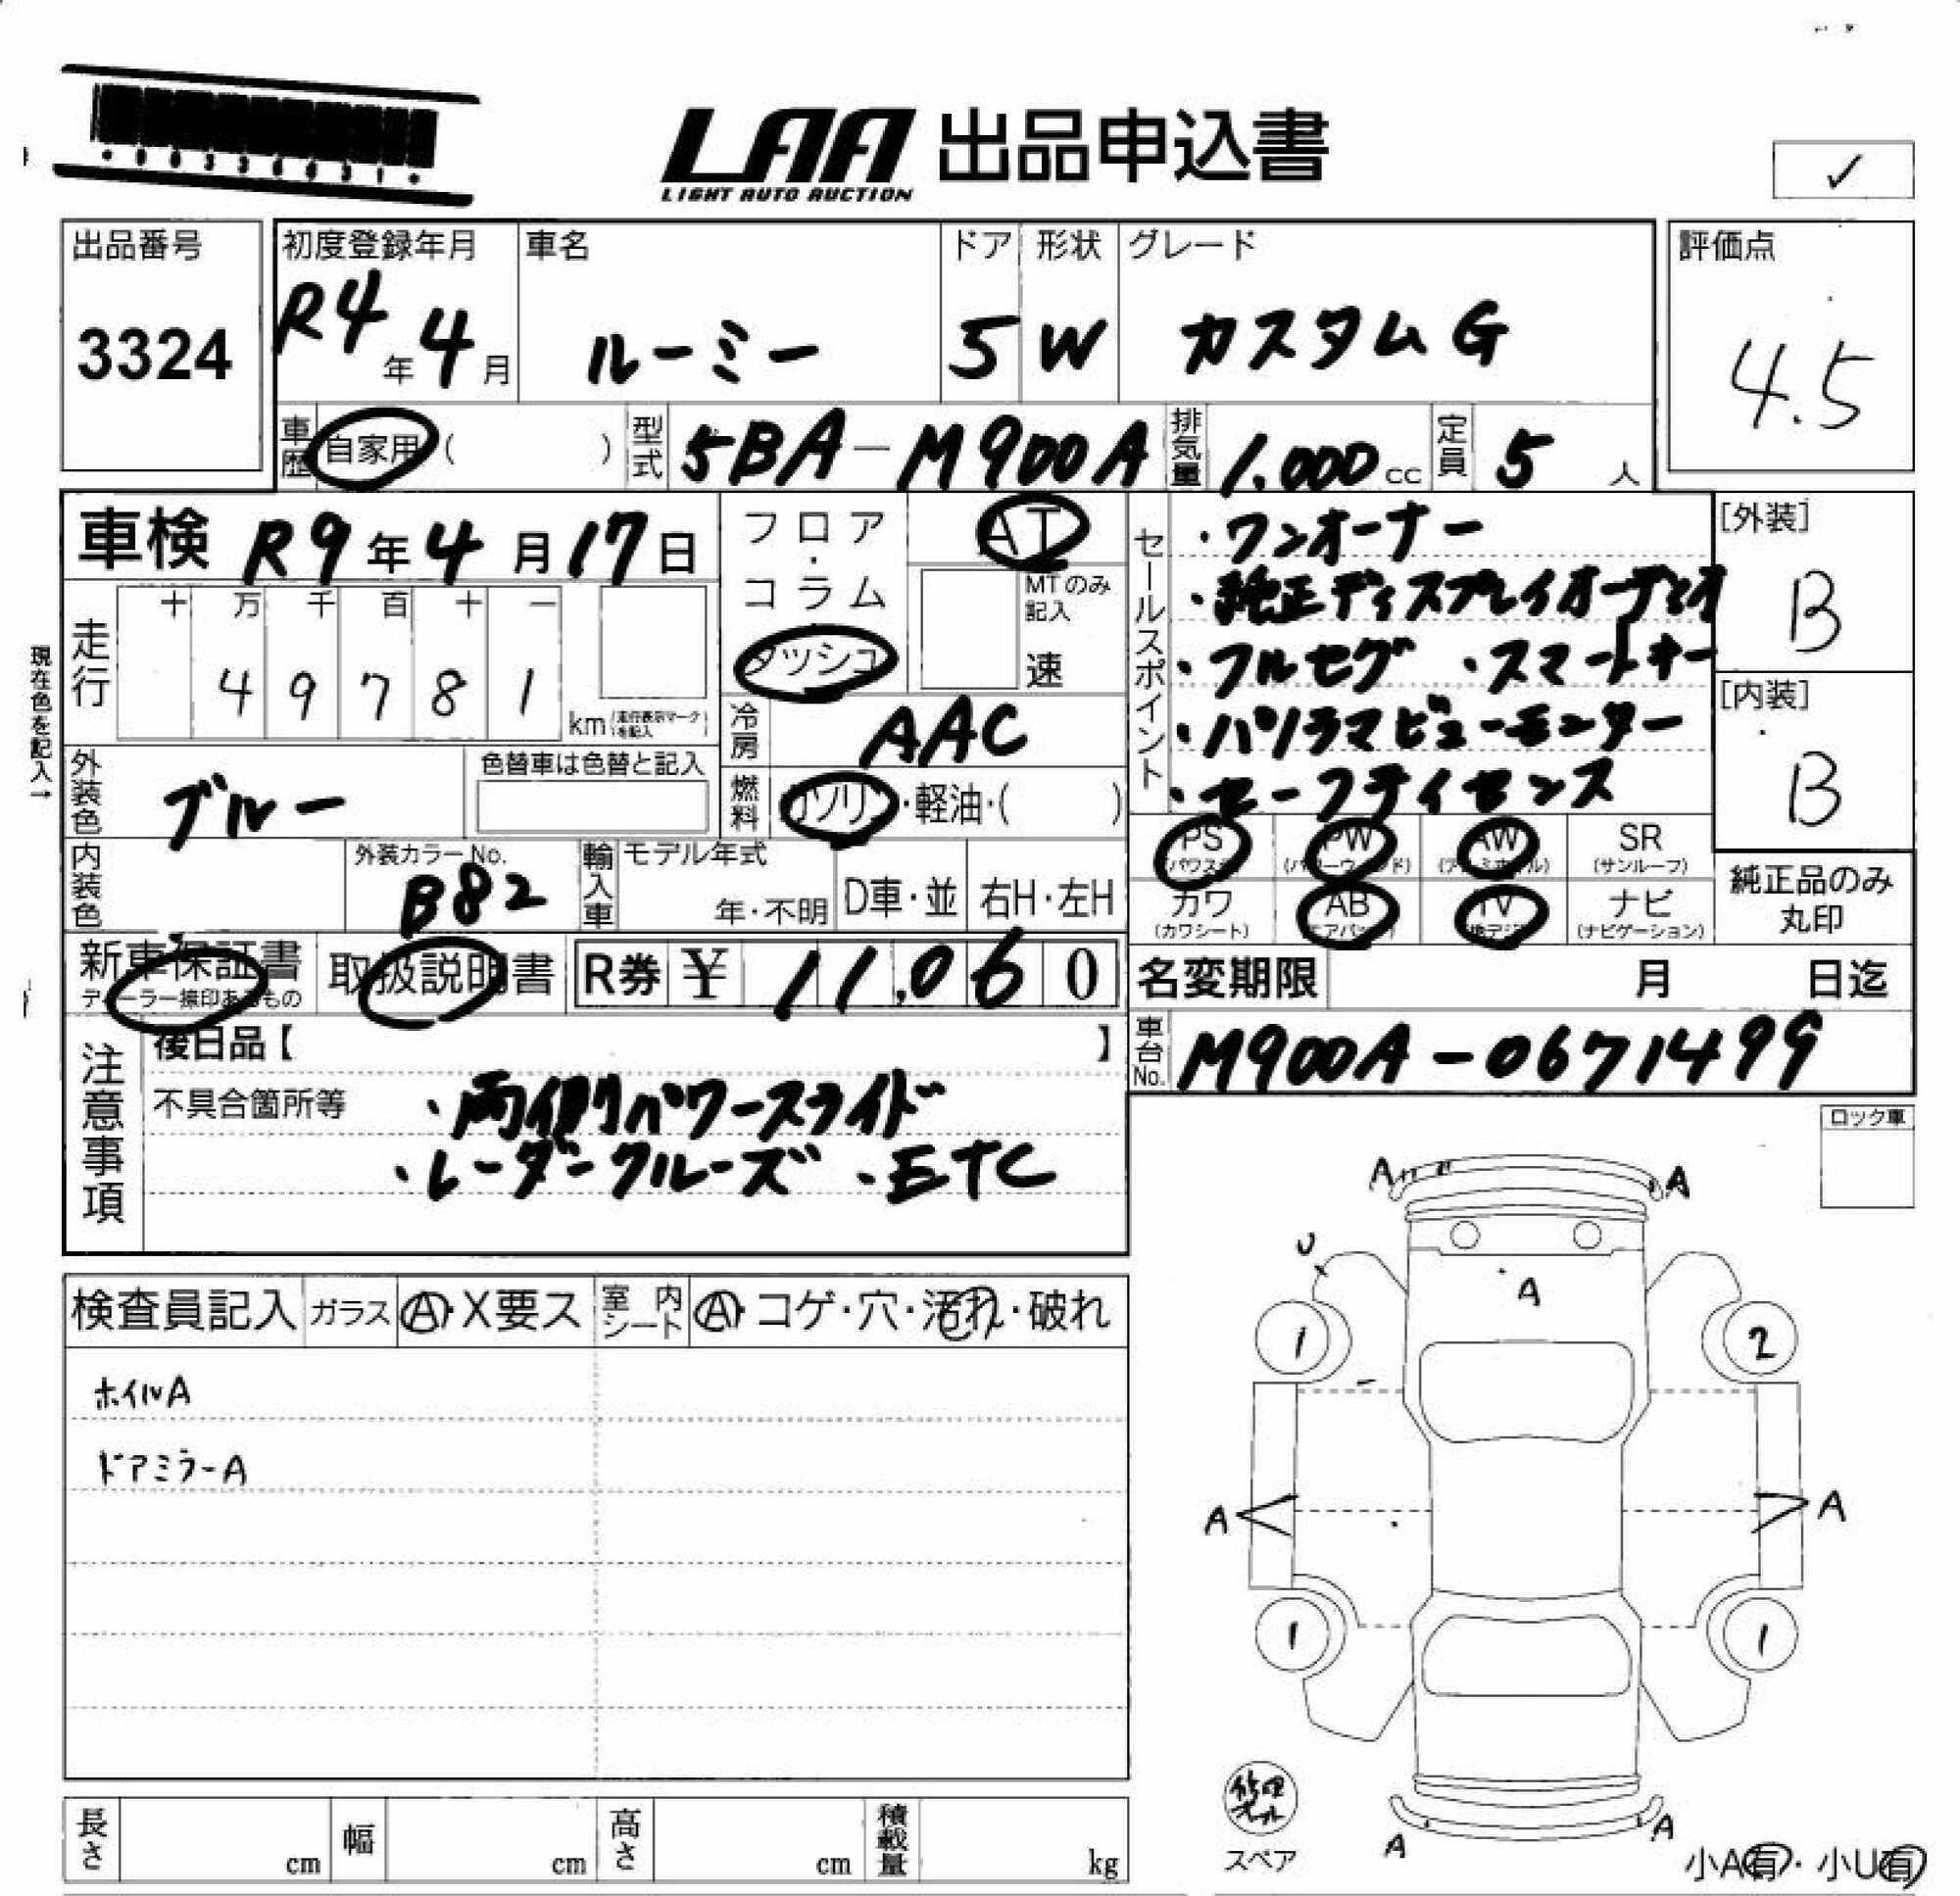 LAA 出品申込書
LIGHT AUTO AUCTION
✓
出品番号
3324
初度登録年月
R4年4月
車名
ルーミー
ドア
5
形状
W
グレード
カスタムG
評価点
4.5
車歴 自家用( )
型式 5BA-M900A
排気量 1.000cc
定員 5人
車検 R9年4月17日
フロア・コラム
ダッシュ
AT
MTのみ記入
速
セールスポイント
・ワンオーナー
・純正ディスプレイオーディオ
・フルセグ ・スマートキー
・パノラマビューモニター
・セーフティセンス
[外装]
B
[内装]
B
現在色を記入→
走行
十 万 千 百 十 一
4 9 7 8 1
km(走行表示マークを記入)
冷房 AAC
外装色 ブルー
色替車は色替と記入
燃料 ガソリン・軽油・( )
内装色
外装カラーNo.
B82
輸入車 モデル年式
年・不明
D車・並
右H・左H
PS
(パワステ)
PW
(パワーウィンド)
AW
(アルミホイル)
SR
(サンルーフ)
カワ
(カワシート)
AB
(エアバック)
TV
ナビ
(ナビゲーション)
純正品のみ
丸印
新車保証書
ディーラー捺印あるもの
取扱説明書
R券 ¥ 11,060
名変期限 月 日迄
注意事項
後日品【 】
不具合箇所等
・両側パワースライド
・レーダークルーズ ・ETC
車台No. M900A-0671499
ロック車
検査員記入
ガラス A・X要ス
室内シート A・コゲ・穴・汚れ・破れ
ホイルA
ドアミラーA
A A
U
A
1 2
A A
1 1
修理キット
スペア
A A
小A有・小U有
長さ cm
幅 cm
高さ cm
積載量 kg